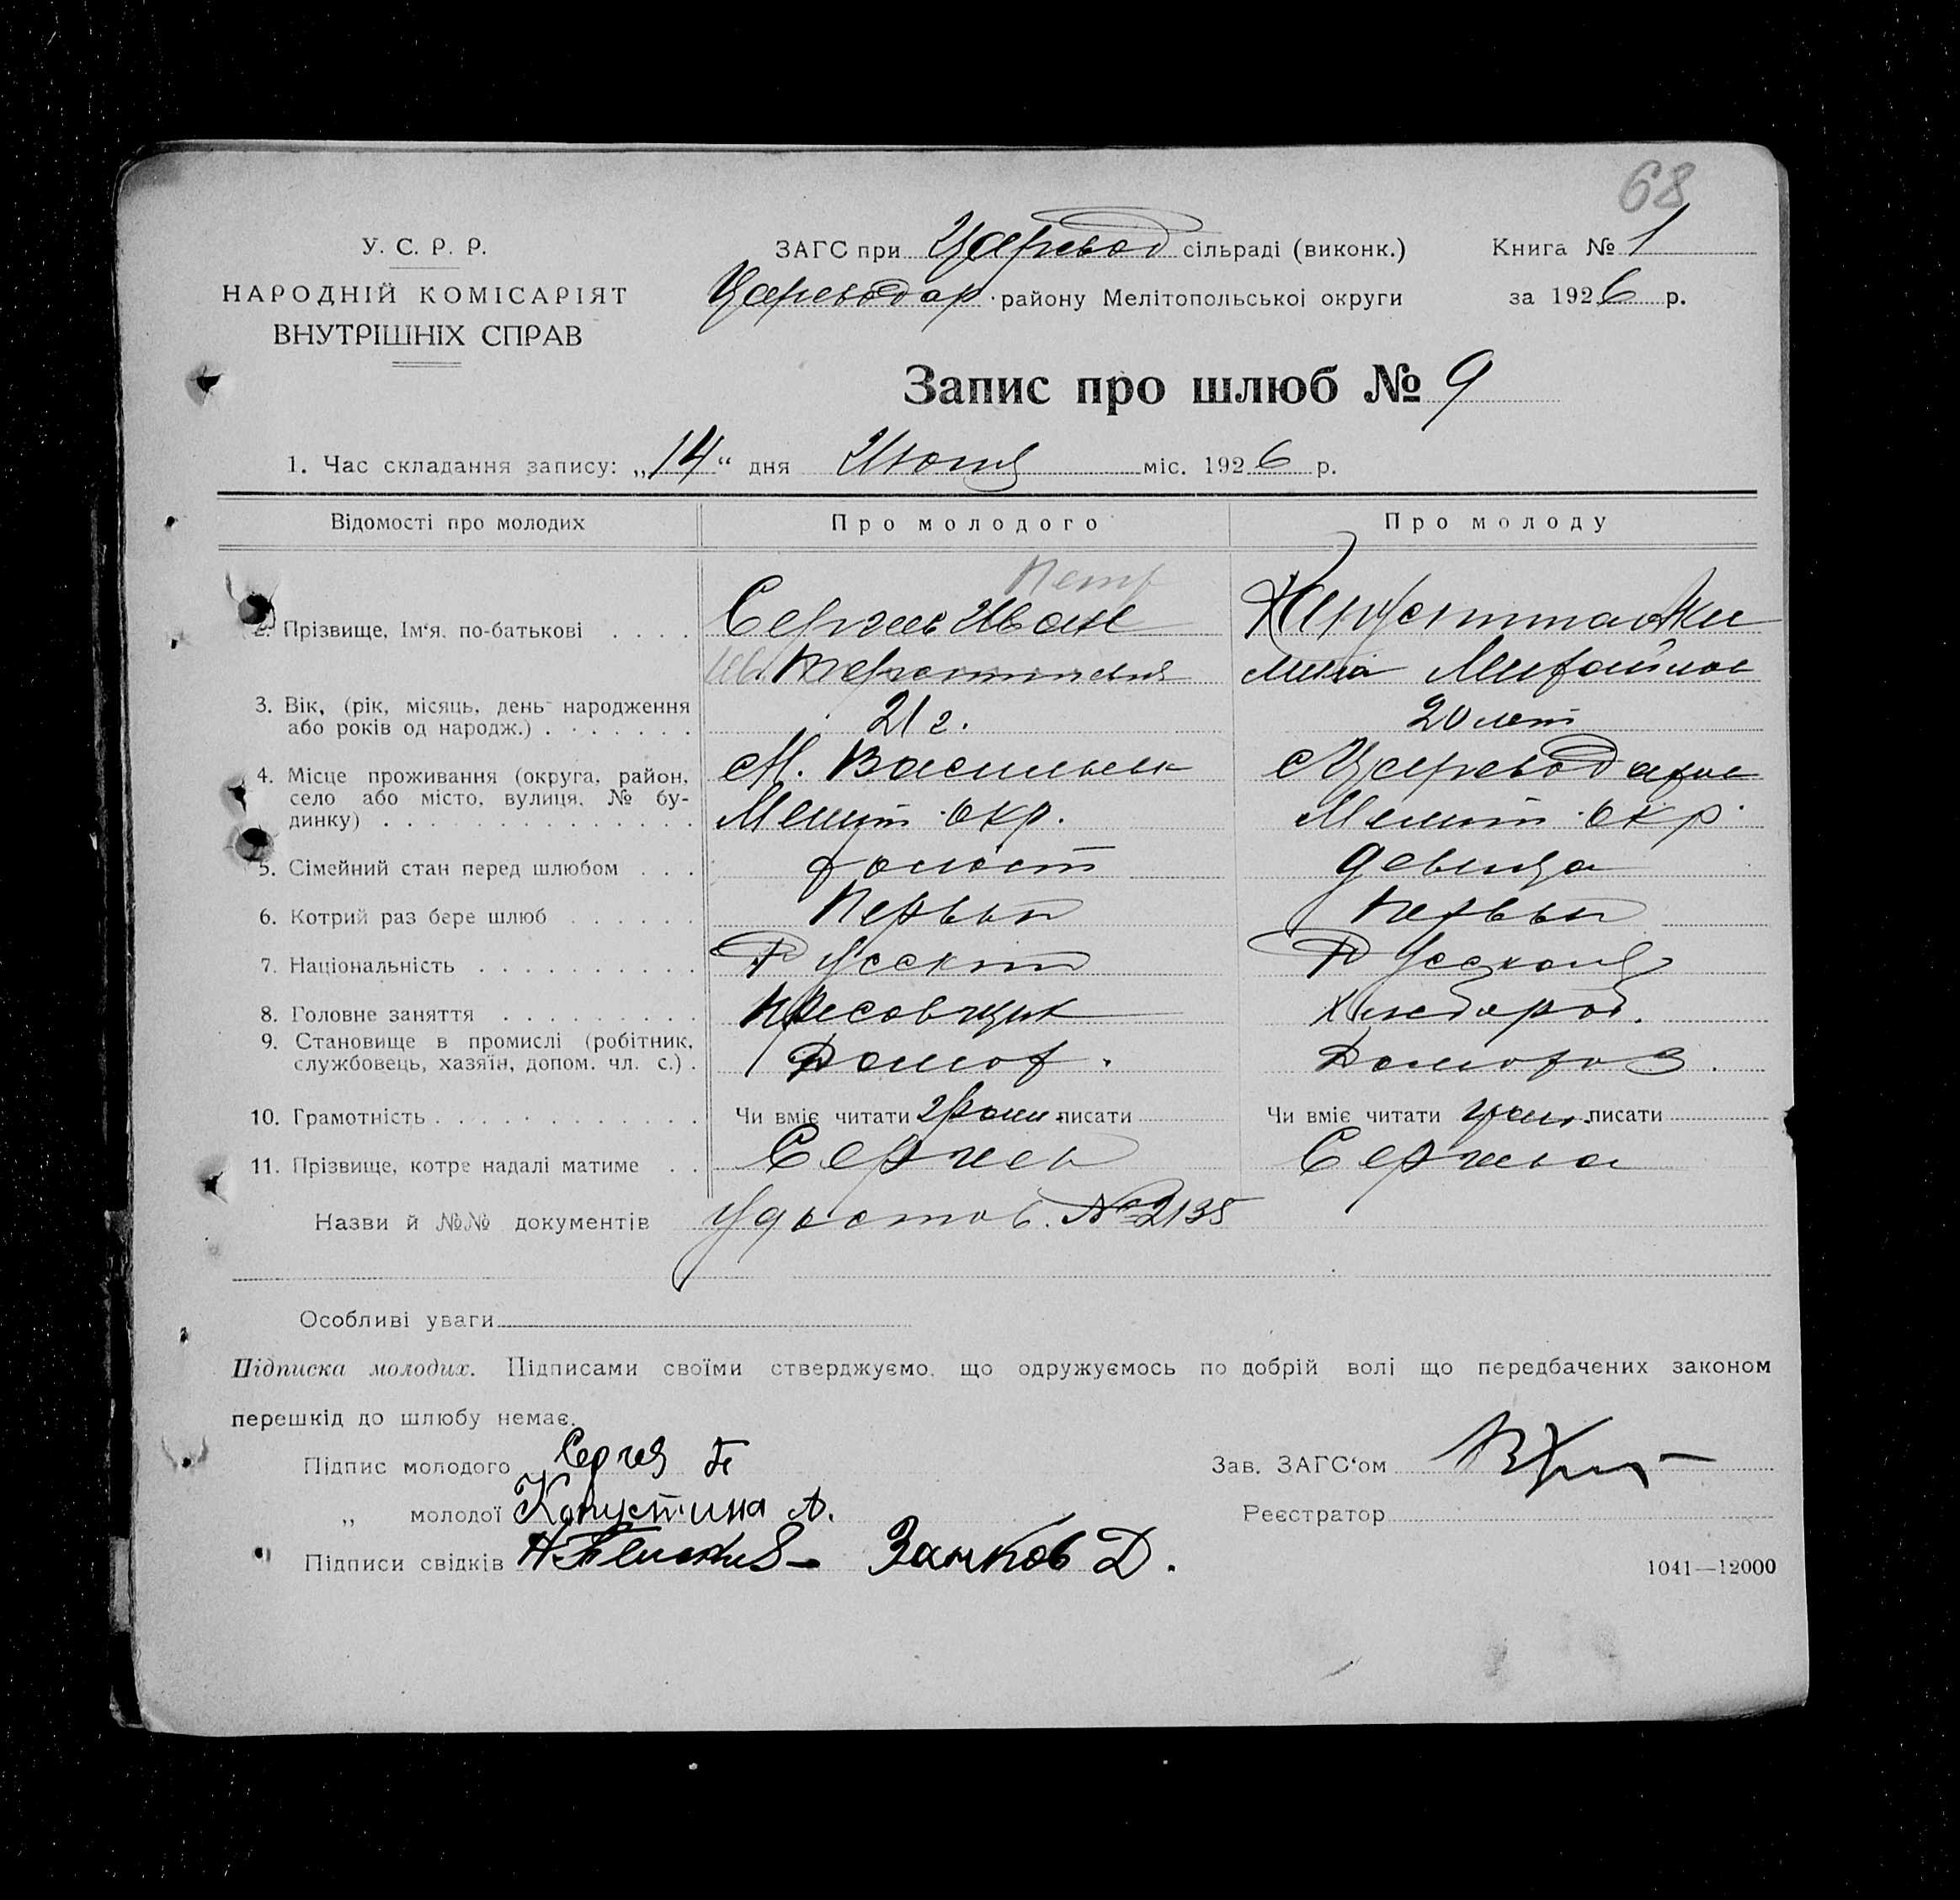 68
У. С. Р. Р.
НАРОДНІЙ КОМІСАРІЯТ
ВНУТРІШНІХ СПРАВ
ЗАГС при Царевод сільраді (виконк.)
Цареводар. району Мелітопольської округи
Книга № 1
за 1926 р.
Запис про шлюб № 9
1. Час складання запису: „14“ дня Июня міс. 1926 р.
Відомості про молодих Про молодого Про молоду
Петр
2. Прізвище, Ім‘я, по-батькові . . . . Сергиев Иван Капустина Аки
лина Михайлов
3. Вік, (рік, місяць, день народження
або років од народж.) . . . . . . . 21 г. 20 лет
4. Місце проживання (округа, район,
село або місто, вулиця, № бу-
динку) . . . . . . . . . . . . . .
М. Васильевк
Мелит. окр.
с Цареводаров
Мелит. окр.
5. Сімейний стан перед шлюбом . . . холост девица
6. Котрий раз бере шлюб . . . . . . Первый Первый
7. Національність . . . . . . . . . . Русский Русская
8. Головне заняття . . . . . . . . . Хлебороб.
9. Становище в промислі (робітник,
службовець, хазяїн, допом. чл. с.) . Домох. Домохоз.
10. Грамотність . . . . . . . . . . . . Чи вміє читати грам. писати Чи вміє читати писати
11. Прізвище, котре надалі матиме . . Сергиев Сергиева
Назви й №№ документів Удостов. № 2135
Особливі уваги
Підписка молодих. Підписами своїми стверджуємо, що одружуємось по добрій волі що передбачених законом
перешкід до шлюбу немає.
Підпис молодого Сергея
„ молодої Капустина А.
Підписи свідків Замков Д.
Зав. ЗАГС‘ом
Реєстратор
1041—12000